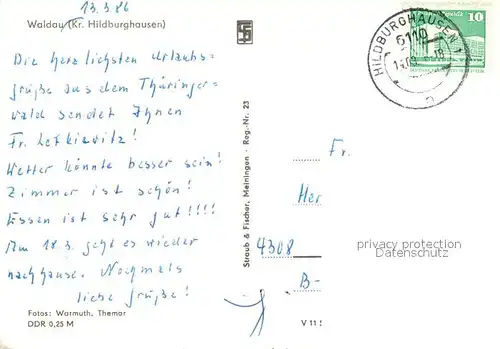 13.3.86
Waldau (Kr. Hildburghausen)
Die herzlichsten Urlaubs-
grüße aus dem Thüringer-
wald sendet Ihnen
Fr.
Wetter könnte besser sein!
Zimmer ist schön!
Essen ist sehr gut!!!!
Am 18.3. geht es wieder
nachhause. Nochmals
liebe Grüße!
Fotos: Warmuth, Themar
DDR 0,25 M
Straub & Fischer, Meiningen · Reg-Nr. 23
HILDBURGHAUSEN 1
6110
10
Fr.
Her
4308
B-
privacy protection
Datenschutz
V 11